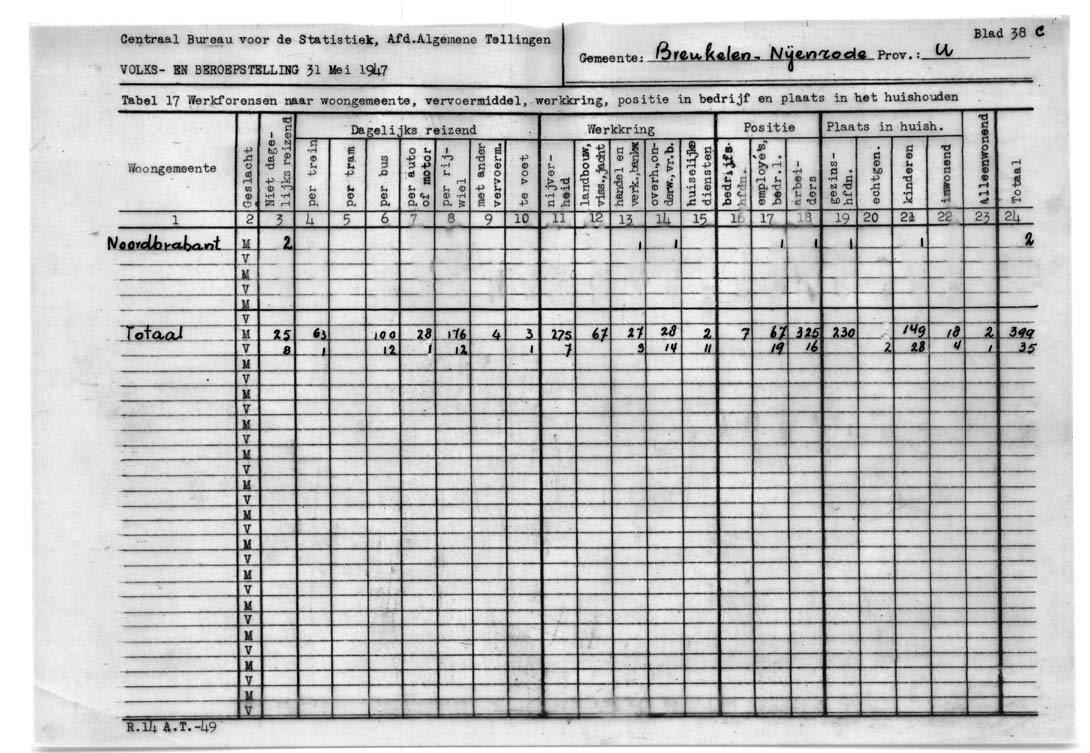 Centraal Bureau voor de Statistiek, Afd.Algemene Tellingen
Blad 38 C
Gemeente: Breukelen-Nijenrode Prov.: U
VOLKS- EN BEROEPSTELLING 31 Mei 1947
Tabel 17 Werkforensen naar woongemeente, vervoermiddel, werkkring, positie in bedrijf en plaats in het huishouden
Woongemeente
Geslacht
Niet dage-
lijks reizend
Dagelijks reizend
per trein
per tram
per bus
per auto
of motor
per rij-
wiel
met ander
vervoerm.
te voet
Werkkring
nijver-
heid
landbouw,
viss.,jacht
handel en
verk.,bankw
overh.,on-
derw.,vr.b.
huiselijke
diensten
Positie
bedrijfs-
hfdn.
employé's,
bedr.l.
arbei-
ders
Plaats in huish.
gezins-
hfdn.
echtgen.
kinderen
inwonend
Alleenwonend
Totaal
1 2 3 4 5 6 7 8 9 10 11 12 13 14 15 16 17 18 19 20 21 22 23 24
Noordbrabant M 2 1 1 1 1 1 1 2
V
M
V
M
V
Totaal M 25 63 100 28 176 4 3 275 67 27 28 2 7 67 325 230 149 18 2 399
V 8 1 12 1 12 1 7 3 14 11 19 16 2 28 4 1 35
M
V
M
V
M
V
M
V
M
V
M
V
M
V
M
V
M
V
M
V
M
V
M
V
R.14 A.T.-49